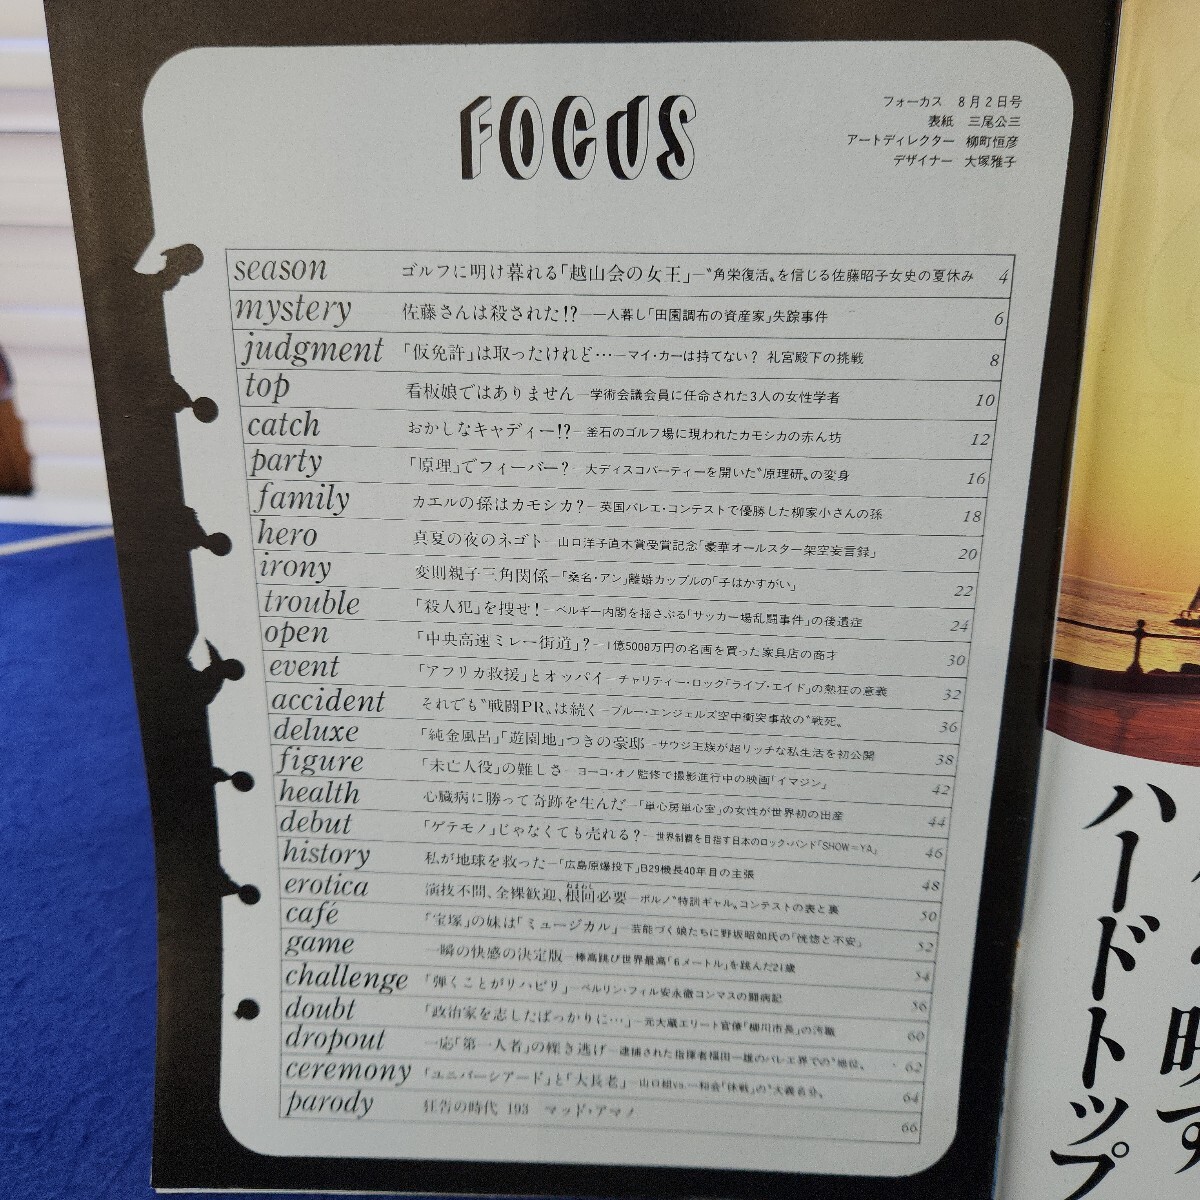 FOCUS
フォーカス 8月2日号
表紙 三尾公三
アートディレクター 柳町恒彦
デザイナー 大塚雅子
season ゴルフに明け暮れる「越山会の女王」―〝角栄復活〟を信じる佐藤昭子女史の夏休み 4
mystery 佐藤さんは殺された!?―一人暮し「田園調布の資産家」失踪事件 6
judgment 「仮免許」は取ったけれど…―マイ・カーは持てない? 礼宮殿下の挑戦 8
top 看板娘ではありません―学術会議会員に任命された3人の女性学者 10
catch おかしなキャディー!?―釜石のゴルフ場に現われたカモシカの赤ん坊 12
party 「原理」でフィーバー?―大ディスコパーティーを開いた〝原理研〟の変身 16
family カエルの孫はカモシカ?―英国バレエ・コンテストで優勝した柳家小さんの孫 18
hero 真夏の夜のネゴト―山口洋子直木賞受賞記念「豪華オールスター架空妄言録」 20
irony 変則親子三角関係―「桑名・アン」離婚カップルの「子はかすがい」 22
trouble 「殺人犯」を捜せ!―ベルギー内閣を揺さぶる「サッカー場乱闘事件」の後遺症 24
open 「中央高速ミレー街道」?―1億5000万円の名画を買った家具店の商才 30
event 「アフリカ救援」とオッパイ―チャリティー・ロック「ライブ・エイド」の熱狂の意義 32
accident それでも〝戦闘PR〟は続く―ブルー・エンジェルズ空中衝突事故の〝戦死〟 36
deluxe 「純金風呂」「遊園地」つきの豪邸―サウジ王族が超リッチな私生活を初公開 38
figure 「未亡人役」の難しさ―ヨーコ・オノ監修で撮影進行中の映画「イマジン」 42
health 心臓病に勝って奇跡を生んだ―「単心房単心室」の女性が世界初の出産 44
debut 「ゲテモノ」じゃなくても売れる?―世界制覇を目指す日本のロック・バンド「SHOW=YA」 46
history 私が地球を救った―「広島原爆投下」B29機長40年目の主張 48
erotica 演技不問、全裸歓迎、根回必要―ポルノ〝特訓ギャル〟コンテストの表と裏 50
café 「宝塚」の妹は「ミュージカル」―芸能づく娘たちに野坂昭如氏の「恍惚と不安」 52
game 一瞬の快感の決定版―棒高跳び世界最高「6メートル」を跳んだ21歳 54
challenge 「弾くことがリハビリ」―ベルリン・フィル安永徹コンマスの闘病記 56
doubt 「政治家を志したばっかりに…」―元大蔵エリート官僚「柳川市長」の汚職 60
dropout 一応「第一人者」の轢き逃げ―逮捕された指揮者福田一雄のバレエ界での〝地位〟 62
ceremony 「ユニバーシアード」と「大長老」―山口組vs.一和会「休戦」の〝大義名分〟 64
parody 狂告の時代 193 マッド・アマノ 66
ハードトップ